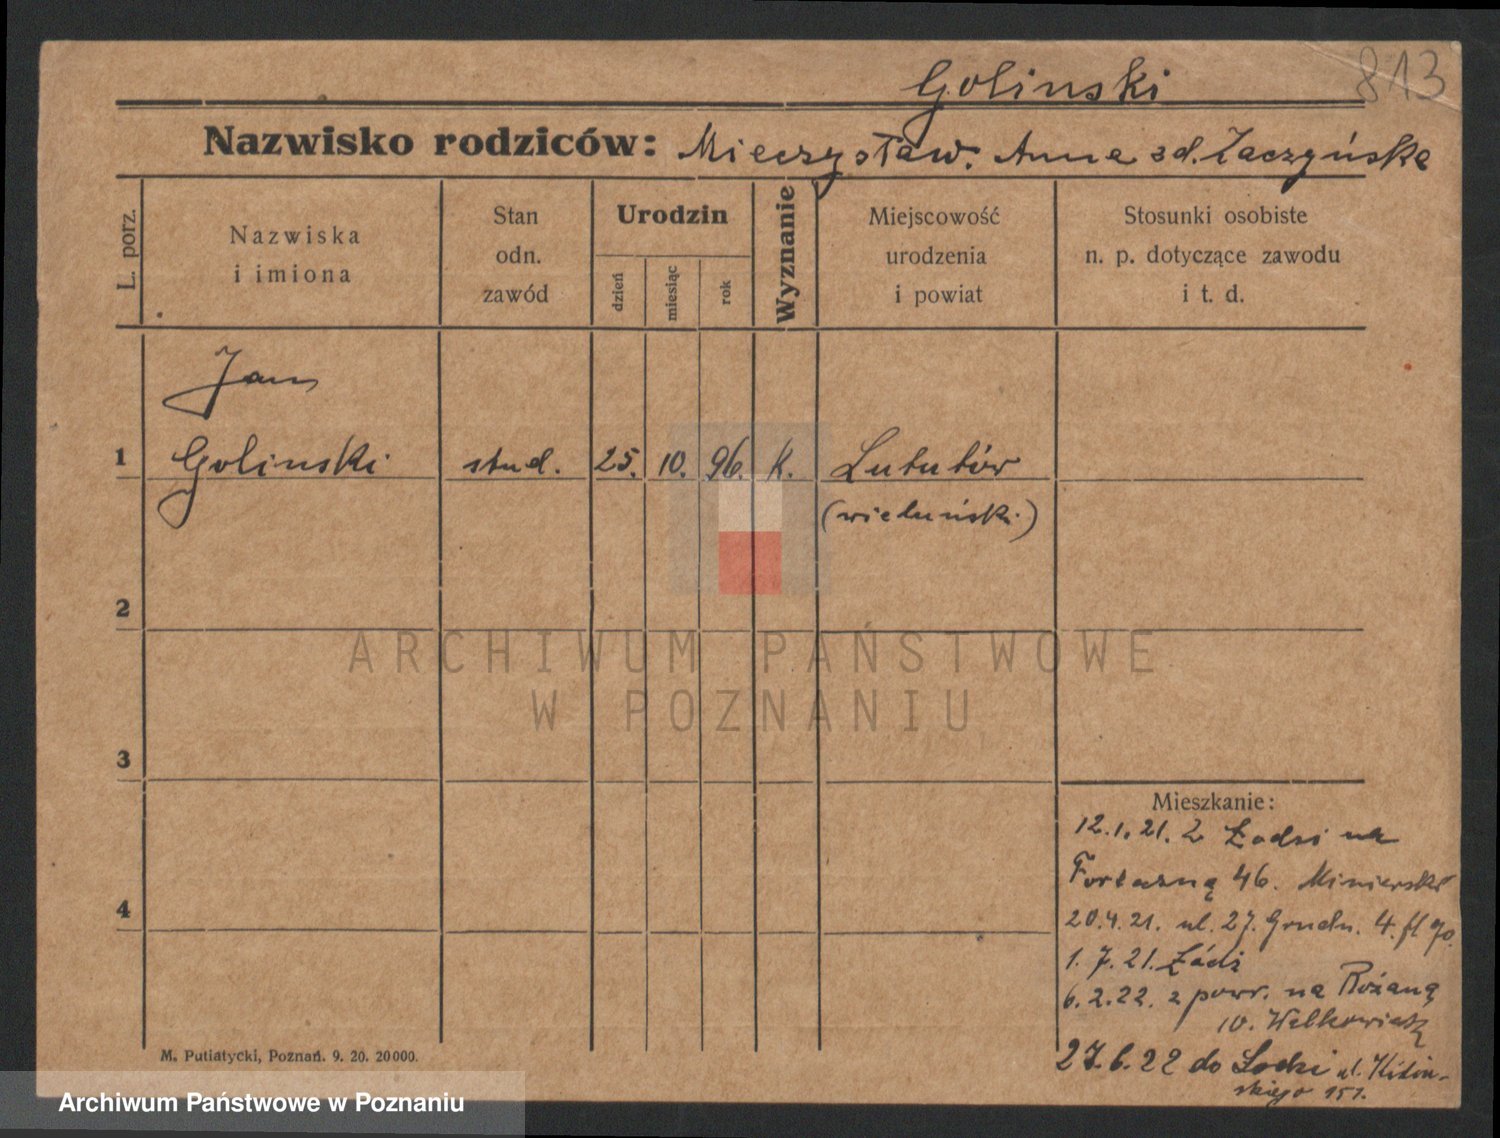 813
Golinski
Nazwisko rodziców: Mieczysław. Anna zd. Łaczyńska
L. porz.
Nazwiska
i imiona
Stan
odn.
zawód
Urodzin
dzień
miesiąc
rok
Wyznanie
Miejscowość
urodzenia
i powiat
Stosunki osobiste
n. p. dotyczące zawodu
i t. d.
Jan
1 Golinski stud. 25. 10. 96. k. Lututów
(wieluński.)
2
ARCHIWUM PAŃSTWOWE
W POZNANIU
3
Mieszkanie:
12.1.21. z Łodzi na
Forteczną 46.
4
20.4.21. ul. 27. Grudn. 4.
1.7.21. Łódź
6.2.22. z powr. na Różaną
10.
27.6.22 do Łodzi ul. Kilin-
skiego 151.
M. Putiatycki, Poznań. 9. 20. 20000.
Archiwum Państwowe w Poznaniu